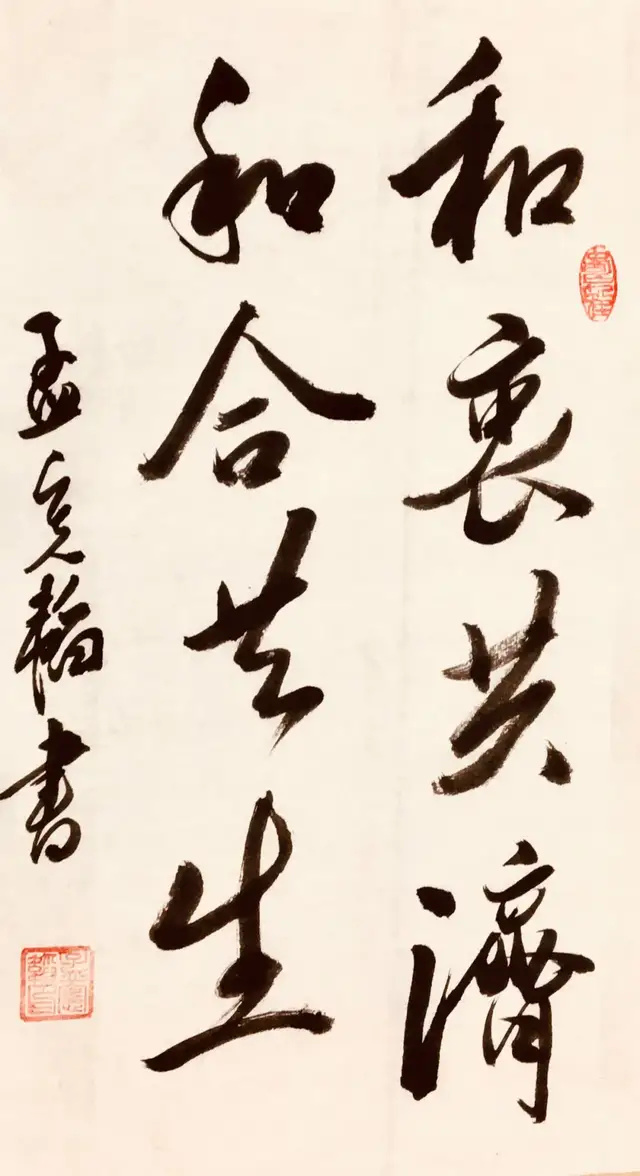 和衷共濟
和合共生
孟克韜書